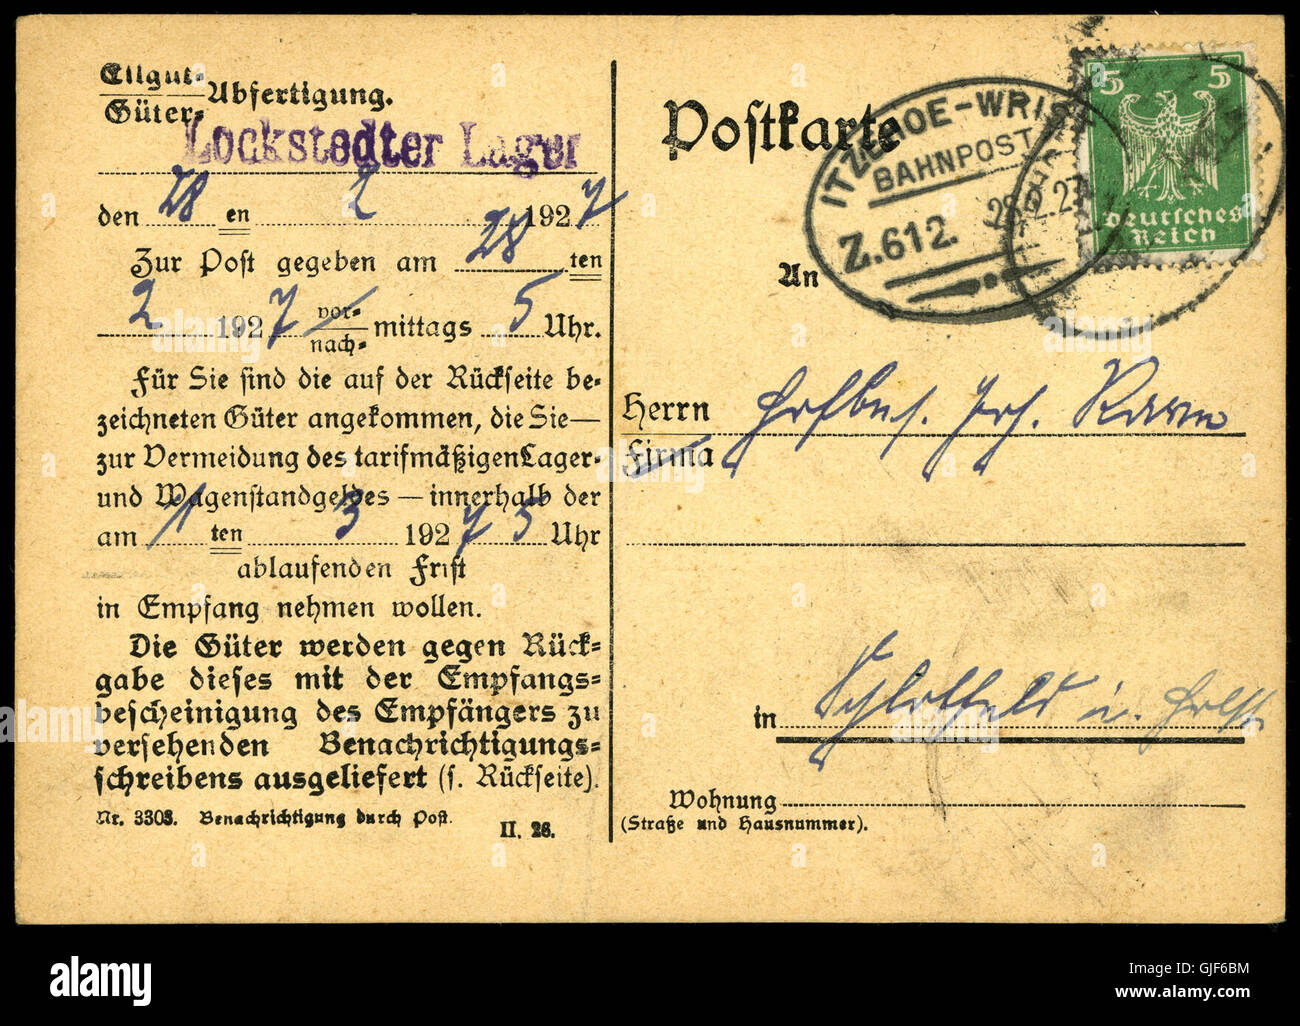 Eilgut-
Güter-
Abfertigung.
Lockstedter Lager
den 28 en 2 1927
Zur Post gegeben am 28 ten
2 1927 vor-
nach- mittags 5 Uhr.
Für Sie sind die auf der Rückseite be-
zeichneten Güter angekommen, die Sie—
zur Vermeidung des tarifmäßigen Lager-
und Wagenstandgeldes — innerhalb der
am 1 ten 3 1927 5 Uhr
ablaufenden Frist
in Empfang nehmen wollen.
Die Güter werden gegen Rück-
gabe dieses mit der Empfangs-
bescheinigung des Empfängers zu
versehenden Benachrichtigungs-
schreibens ausgeliefert (s. Rückseite).
Nr. 3303. Benachrichtigung durch Post.
II. 26.
Postkarte
ITZEHOE-WRIST
BAHNPOST
Z.612. 28.2.27
5 5
Deutsches
Reich
An
Herrn
Firma
in Schlotfeld i. Holst
Wohnung
(Straße und Hausnummer).
alamy
alamy stock photo
Image ID: GJF6BM
www.alamy.com